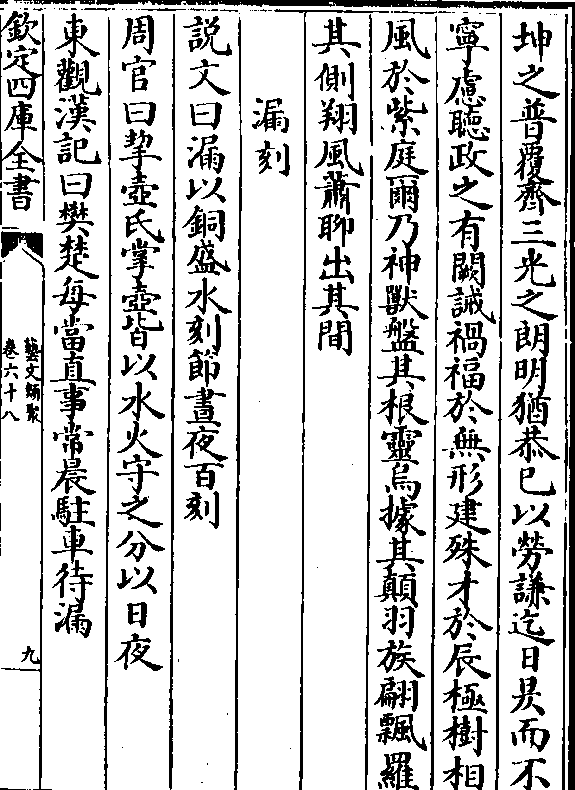 坤之普覆齊三光之朗明猶恭已以勞謙迄日昃而不
寧慮聽政之有闕誡禍福於無形建殊才於辰極樹相
風於紫庭爾乃神獸盤其根靈烏據其顛羽族翩飄羅
其側翔風蕭聊出其間
漏刻
説文曰漏以銅盛水刻節晝夜百刻
周官曰挈壺氏掌壺皆以水火守之分以日夜
東觀漢記曰樊楚每當直事常晨駐車待漏
欽定四庫全書
藝文類聚
卷六十八
九